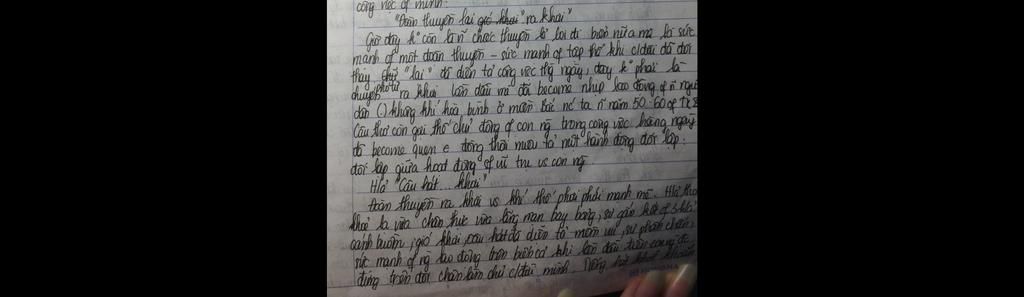 công việc of mình.
"Đoàn thuyền lại ra khơi"
Giờ đây k° còn là n~ chiếc thuyền lẻ loi đi biển nữa mà là sức
mạnh of một đoàn thuyền – sức mạnh of tập thể khi c/đời đã đổi
thay. Chữ "lại" đã diễn tả công việc hằng ngày, đây k° phải là
chuyến ra khơi lần đầu mà đã become nhịp lao động of n~ người
dân () không khí hoà bình ở miền Bắc nc ta n~ năm 50-60 of TK
Câu thơ còn gợi thế chủ động of con ng trong công việc hàng ngày
đã become quen e đồng thời miêu tả nét hành động đối lập:
đối lập giữa hoạt động of vũ trụ vs con ng
H/ả "Câu hát ... khơi"
Đoàn thuyền ra khơi vs khí thế phơi phới mạnh mẽ. H/ả thơ
khoẻ là vừa chân thực vừa lãng mạn bay bổng, sự gắn kết of 3 h/ả
cánh buồm, gió khơi, câu hát đã diễn tả niềm vui, sự phấn chấn,
sức mạnh of ng lao động trên biển cả khi lần đầu tiên
đứng trên đôi chân làm chủ c/đời mình.